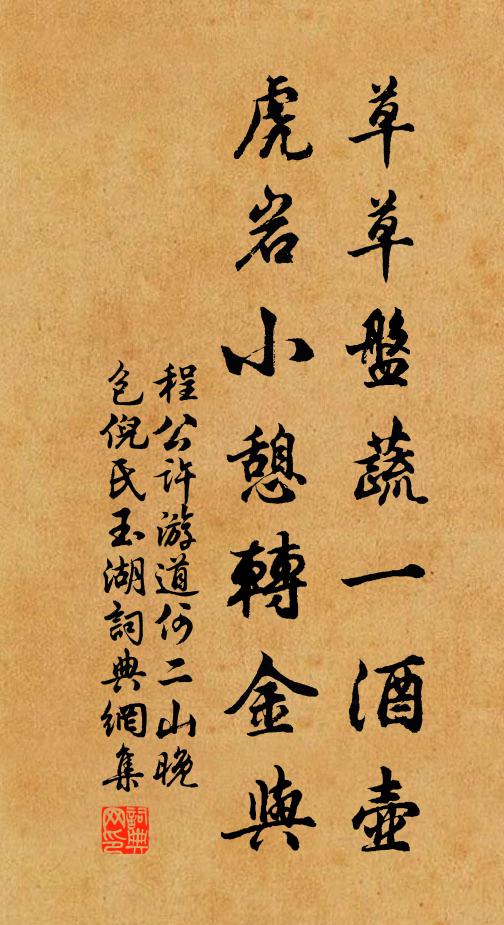 草草盤蔬一酒壺
虎岩小憩轉金與
程公許游道何二山晚
包倪民玉湖詞典網集
詞典网印